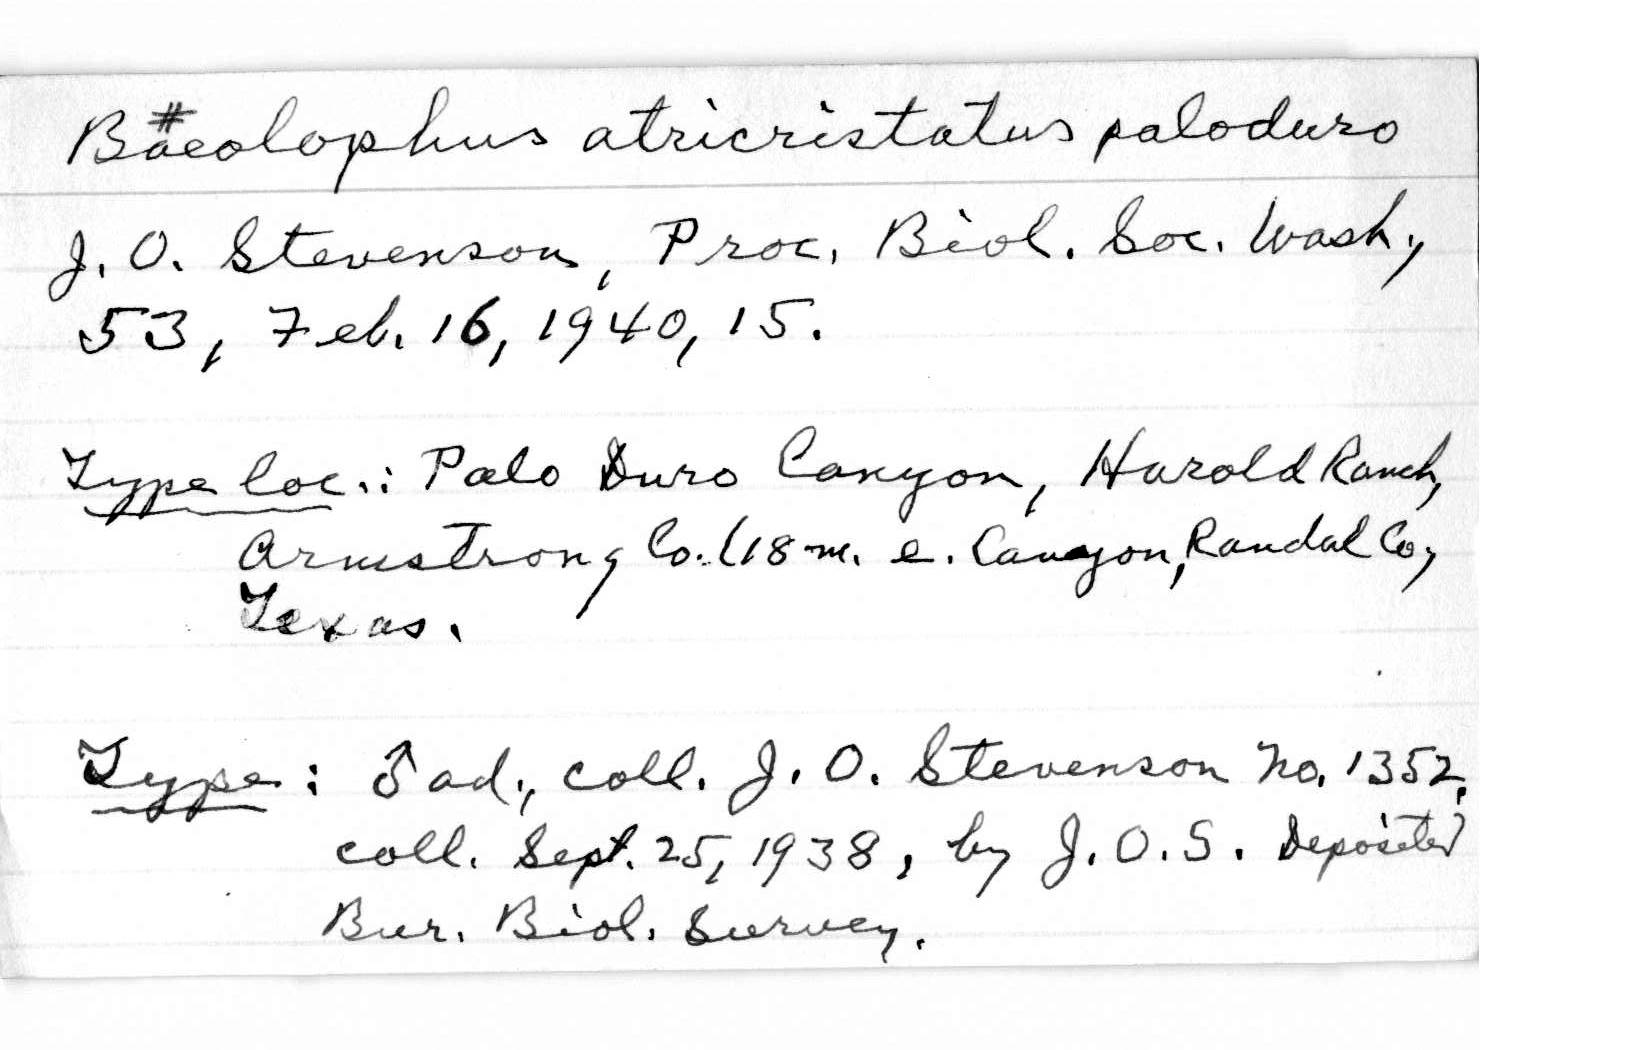 Baeolophus atricristatus paloduro
#
J. O. Stevenson, Proc. Biol. Soc. Wash.,
53, Feb. 16, 1940, 15.
Type loc.: Palo Duro Canyon, Harold Ranch,
Armstrong Co. (18 m. e. Canyon, Randal Co,
Texas.
Type: ♂ ad., coll. J. O. Stevenson No. 1352,
coll. Sept. 25, 1938, by J. O. S. Deposited
Bur. Biol. Survey.